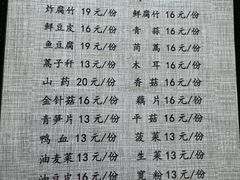 炸腐竹 19元/份 鲜腐竹 16元/份
鲜豆皮 16元/份 青蒜 16元/份
鱼豆腐 19元/份 茼蒿 16元/份
蒿子秆 13元/份 木耳 16元/份
山药 20元/份 香菇 16元/份
金针菇 16元/份 藕片 16元/份
青笋片 13元/份 平菇 16元/份
鸭血 13元/份 菠菜 13元/份
油麦菜 13元/份 生菜 13元/份
油豆皮 16元/份 宽粉 13元/份